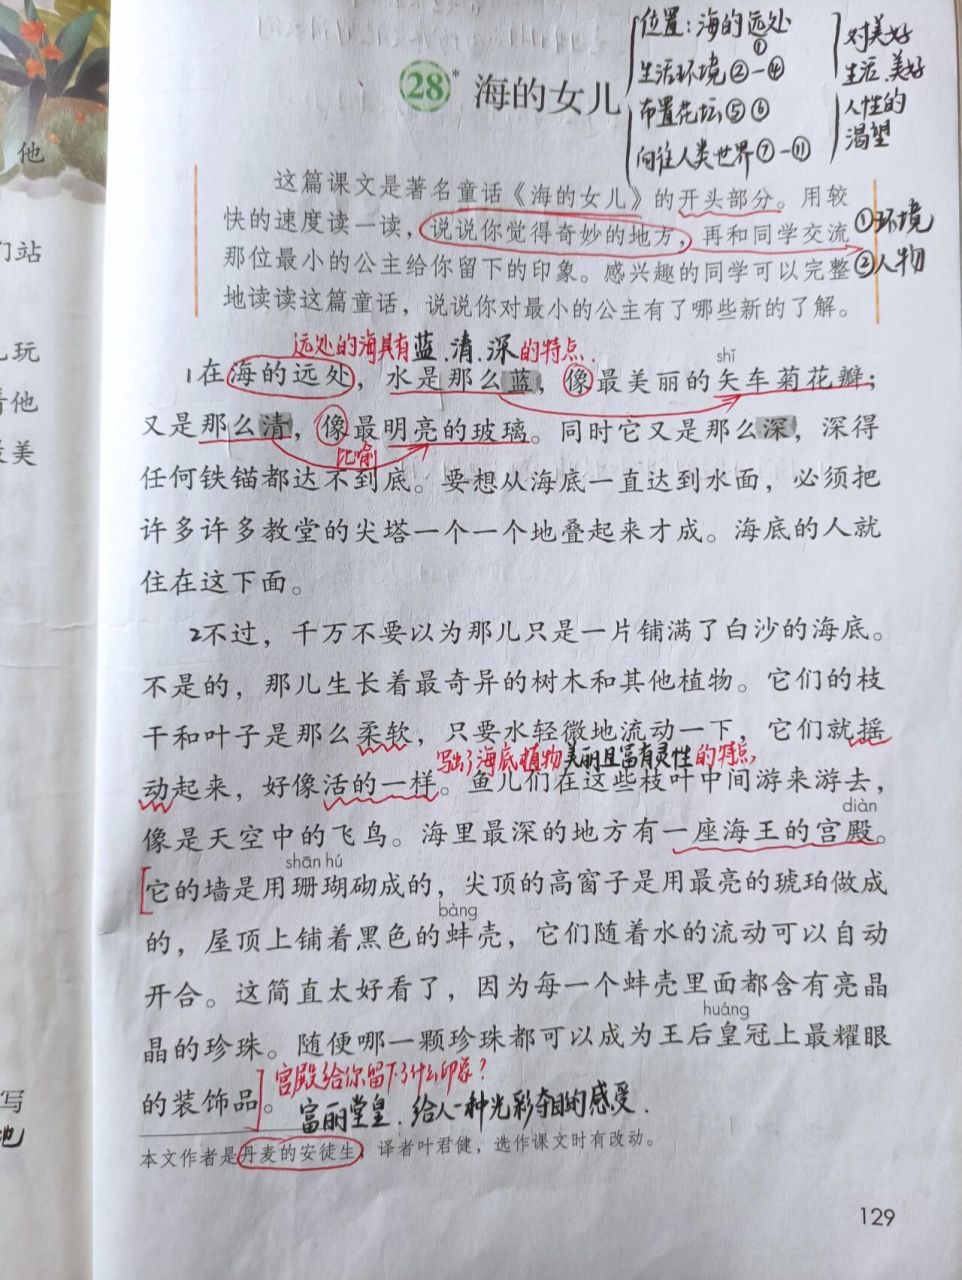 他
们站
玩
着他
最美
写
他
位置：海的远处
①
生活环境②－④
布置花坛⑤⑥
向往人类世界⑦－⑪
对美好
生活、美好
人性的
渴望
28* 海的女儿
这篇课文是著名童话《海的女儿》的开头部分。用较
快的速度读一读，说说你觉得奇妙的地方，再和同学交流
①环境
那位最小的公主给你留下的印象。感兴趣的同学可以完整
②人物
地读读这篇童话，说说你对最小的公主有了哪些新的了解。
远处的海具有蓝、清、深的特点.
shǐ
1在海的远处，水是那么蓝，像最美丽的矢车菊花瓣；
又是那么清，像最明亮的玻璃。同时它又是那么深，深得
比喻
任何铁锚都达不到底。要想从海底一直达到水面，必须把
许多许多教堂的尖塔一个一个地叠起来才成。海底的人就
住在这下面。
2不过，千万不要以为那儿只是一片铺满了白沙的海底。
不是的，那儿生长着最奇异的树木和其他植物。它们的枝
干和叶子是那么柔软，只要水轻微地流动一下，它们就摇
写出了海底植物美丽且富有灵性的特点，
动起来，好像活的一样。鱼儿们在这些枝叶中间游来游去，
diàn
像是天空中的飞鸟。海里最深的地方有一座海王的宫殿。
shān hú
它的墙是用珊瑚砌成的，尖顶的高窗子是用最亮的琥珀做成
bàng
的，屋顶上铺着黑色的蚌壳，它们随着水的流动可以自动
开合。这简直太好看了，因为每一个蚌壳里面都含有亮晶
huáng
晶的珍珠。随便哪一颗珍珠都可以成为王后皇冠上最耀眼
的装饰品。
宫殿给你留下了什么印象？
富丽堂皇．给人一种光彩夺目的感受．
本文作者是丹麦的安徒生，译者叶君健，选作课文时有改动。
129